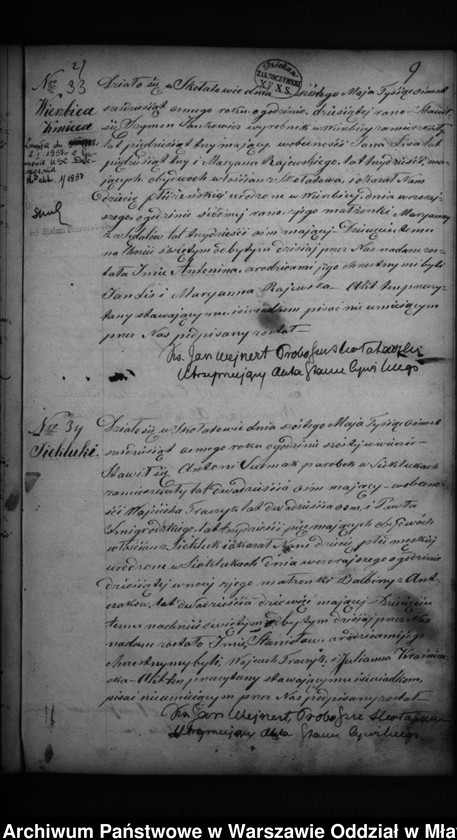 9
Nro 33
Wierzbica
Działo się w Skołatowie dnia szóstego Maja Tysiąc ośmset
sześćdziesiąt ósmego roku o godzinie dziesiątej rano. Stawił
się Szymon Jankowski wyrobnik w Wierzbicy zamieszkały
lat pięćdziesiąt trzy mający, w obecności Jana Lisa lat
pięćdziesiąt trzy i Maryana Rajewskiego, lat trzydzieści ma-
jących obydwóch włościan z Skołatowa, i okazał Nam
dziecię płci żeńskiej urodzone w Wierzbicy, dnia wczoraj-
szego o godzinie siódmej rano, z jego małżonki Maryanny
lat trzydzieści ośm mającej. Dziecięciu temu
na Chrzcie świętym odbytym dzisiaj przez Nas nadane zos-
tało Imie Antonina, a rodzicami jego chrzestnymi byli
Jan Lis i Maryanna Rajewska. Akt ten przeczy-
tany stawającemu i świadkom pisać nie umiejącym
przez Nas podpisany został.
Ks. Jan Wejnert Proboszcz Skołatowski
Utrzymujący Akta Stanu Cywilnego
No 34
Sichluki
Działo się w Skołatowie dnia szóstego Maja Tysiąc ośmset
sześćdziesiąt ósmego roku o godzinie szóstej wieczo-
Stawił się Antoni parobek w Sichlukach
zamieszkały, lat dwadzieścia ośm mający, w obecno-
ści Wojciecha Traczyk lat dwadzieścia ośm, i Pawła
Śmigrodzkiego, lat trzydzieści pięć mających obydwóch
włościan z Sichluk i okazał Nam dziecię płci męskiej
urodzone w Sichlukach dnia wczorajszego o godzinie
dziesiątej w nocy z jego małżonki Balbiny z
lat dwadzieścia dziewięć mającej. Dziecięciu
temu na chrzcie świętym odbytym dzisiaj przez Nas
nadane zostało Imie Stanisław, a rodzicami jego
chrzestnymi byli, Wojciech Traczyk i Julianna
Akt ten przeczytany stawającemu i świadkom,
pisać nieumiejącym przez Nas podpisany został.
Ks. Jan Wejnert, Proboszcz Skołatowski
Utrzymujący Akta Stanu Cywilnego.
Archiwum Państwowe w Warszawie Oddział w Mła